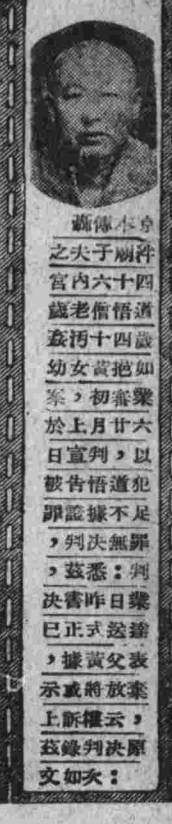 轟傳本京
之夫子廟泮
宮內六十四
歲老僧悟道
姦污十四歲
幼女黃抱如
案，初審業
於上月廿六
日宣判，以
被告悟道犯
罪證據不足
，判決無罪
，茲悉：判
決書昨日業
已正式送達
，據黃父表
示或將放棄
上訴權云，
茲錄判決原
文如次：